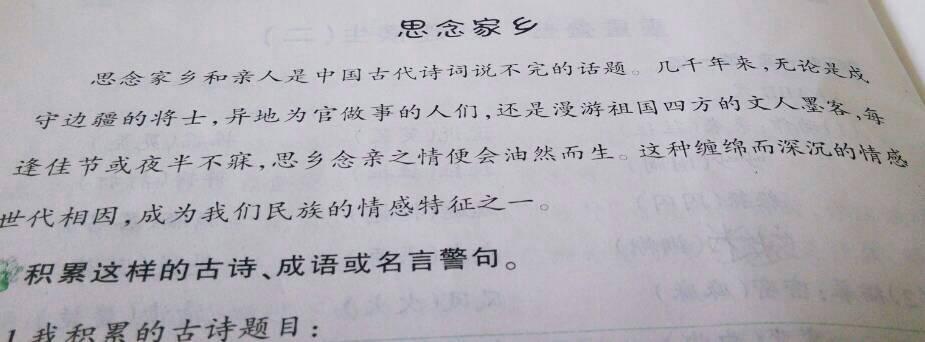 思念家乡
思念家乡和亲人是中国古代诗词说不完的话题。几千年来,无论是戍
守边疆的将士,异地为官做事的人们,还是漫游祖国四方的文人墨客,每
逢佳节或夜半不寐,思乡念亲之情便会油然而生。这种缠绵而深沉的情感
世代相因,成为我们民族的情感特征之一。
积累这样的古诗、成语或名言警句。
1.我积累的古诗题目: